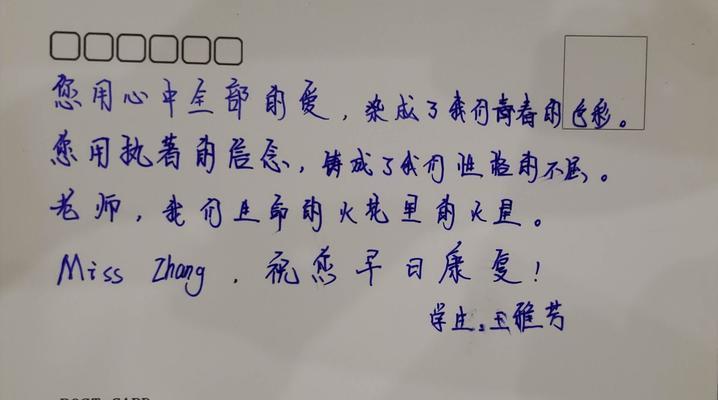 您用心中全部的爱，染成了我们青春的色彩。
您用执著的信念，铸成了我们性格的不屈。
老师，我们生命的火花里的火星。
Miss Zhang，祝您早日康复！
学生：王雅芳
POST CARD